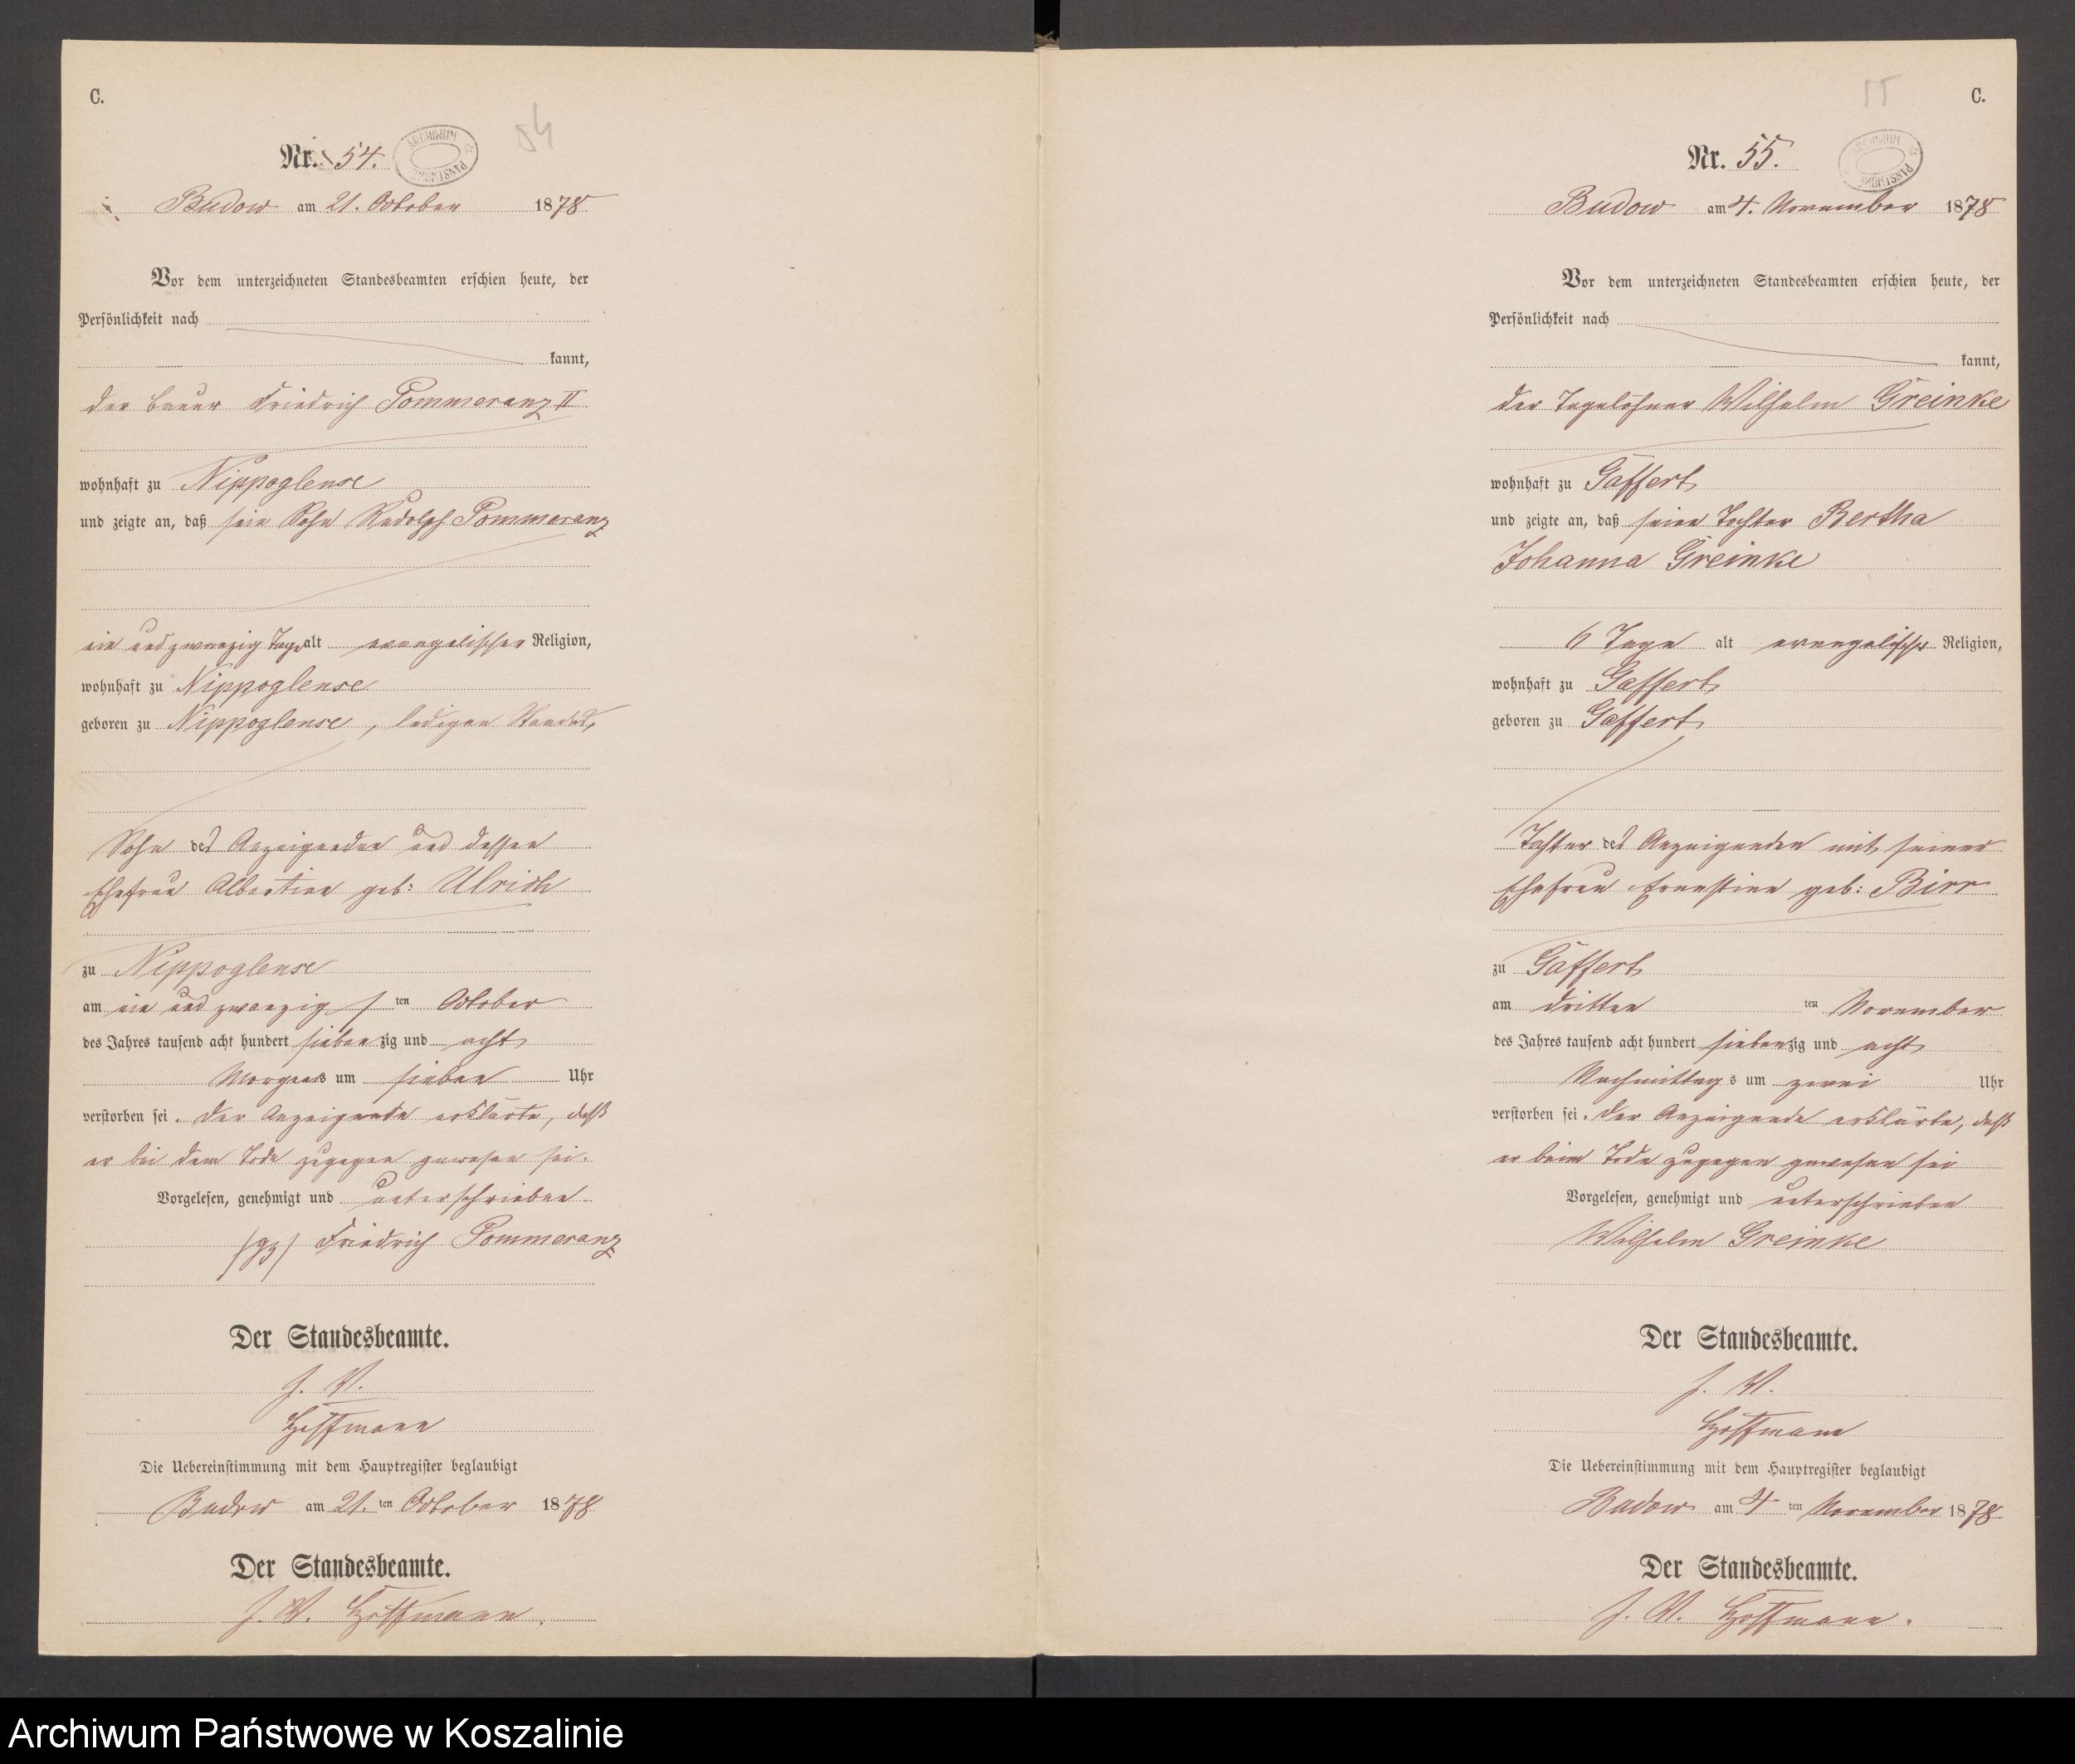 C.
54
Nr. 54.
ARCHIWUM PAŃSTWOWE
Budow am 21. October 1878
Vor dem unterzeichneten Standesbeamten erschien heute, der
Persönlichkeit nach
kannt,
der Bauer Friedrich Pommeranz II
wohnhaft zu Nippoglense
und zeigte an, daß sein Sohn Rudolph Pommeranz
ein und zwanzig Tage alt evangelischer Religion,
wohnhaft zu Nippoglense
geboren zu Nippoglense, ledigen Standes,
Sohn des Anzeigenden und dessen
Ehefrau Albertine geb: Ulrich
zu Nippoglense
am ein und zwanzigsten October
des Jahres tausend acht hundert siebenzig und acht
Morgens um sieben Uhr
verstorben sei. Der Anzeigende erklärte, daß
er bei dem Tode zugegen gewesen sei.
Vorgelesen, genehmigt und unterschrieben
(gz) Friedrich Pommeranz
Der Standesbeamte.
J. V.
Hoffmann
Die Uebereinstimmung mit dem Hauptregister beglaubigt
Budow am 21.ten October 1878
Der Standesbeamte.
J. V. Hoffmann.
C.
55
Nr. 55.
ARCHIWUM PAŃSTWOWE
Budow am 4. November 1878
Vor dem unterzeichneten Standesbeamten erschien heute, der
Persönlichkeit nach
kannt,
der Tagelöhner Wilhelm Greinke
wohnhaft zu Gaffert
und zeigte an, daß seine Tochter Bertha
Johanna Greinke
6 Tage alt evangelischer Religion,
wohnhaft zu Gaffert
geboren zu Gaffert
Tochter des Anzeigenden mit seiner
Ehefrau Ernestine geb: Birr
zu Gaffert
am dritten ten November
des Jahres tausend acht hundert siebenzig und acht
Nachmittags um zwei Uhr
verstorben sei. Der Anzeigende erklärte, daß
er beim Tode zugegen gewesen sei
Vorgelesen, genehmigt und unterschrieben
Wilhelm Greinke
Der Standesbeamte.
J. V.
Hoffmann
Die Uebereinstimmung mit dem Hauptregister beglaubigt
Budow am 4 ten November 1878
Der Standesbeamte.
J. V. Hoffmann.
Archiwum Państwowe w Koszalinie